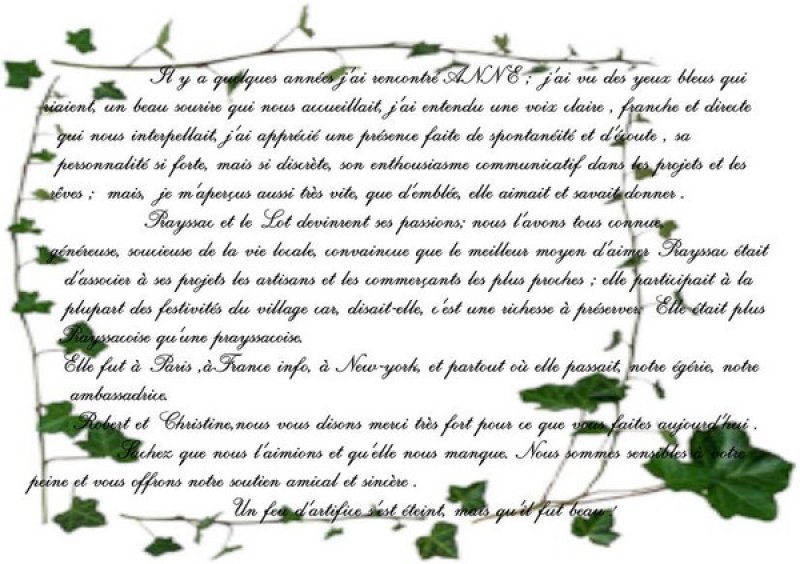 Il y a quelques années j'ai rencontré ANNE ; j'ai vu des yeux bleus qui
riaient, un beau sourire qui nous accueillait, j'ai entendu une voix claire , franche et directe
qui nous interpellait, j'ai apprécié une présence faite de spontanéité et d'écoute , sa
personnalité si forte, mais si discrète, son enthousiasme communicatif dans les projets et les
rêves ; mais, je m'aperçus aussi très vite, que d'emblée, elle aimait et savait donner .
Prayssac et le Lot devinrent ses passions; nous l'avons tous connue,
généreuse, soucieuse de la vie locale, convaincue que le meilleur moyen d'aimer Prayssac était
d'associer à ses projets les artisans et les commerçants les plus proches ; elle participait à la
plupart des festivités du village car, disait-elle, c'est une richesse à préserver. Elle était plus
Prayssacoise qu'une prayssacoise.
Elle fut à Paris ,à France info, à New-york, et partout où elle passait, notre égérie, notre
ambassadrice.
Robert et Christine,nous vous disons merci très fort pour ce que vous faites aujourd'hui .
Sachez que nous l'aimions et qu'elle nous manque. Nous sommes sensibles à votre
peine et vous offrons notre soutien amical et sincère .
Un feu d'artifice s'est éteint, mais qu'il fut beau !